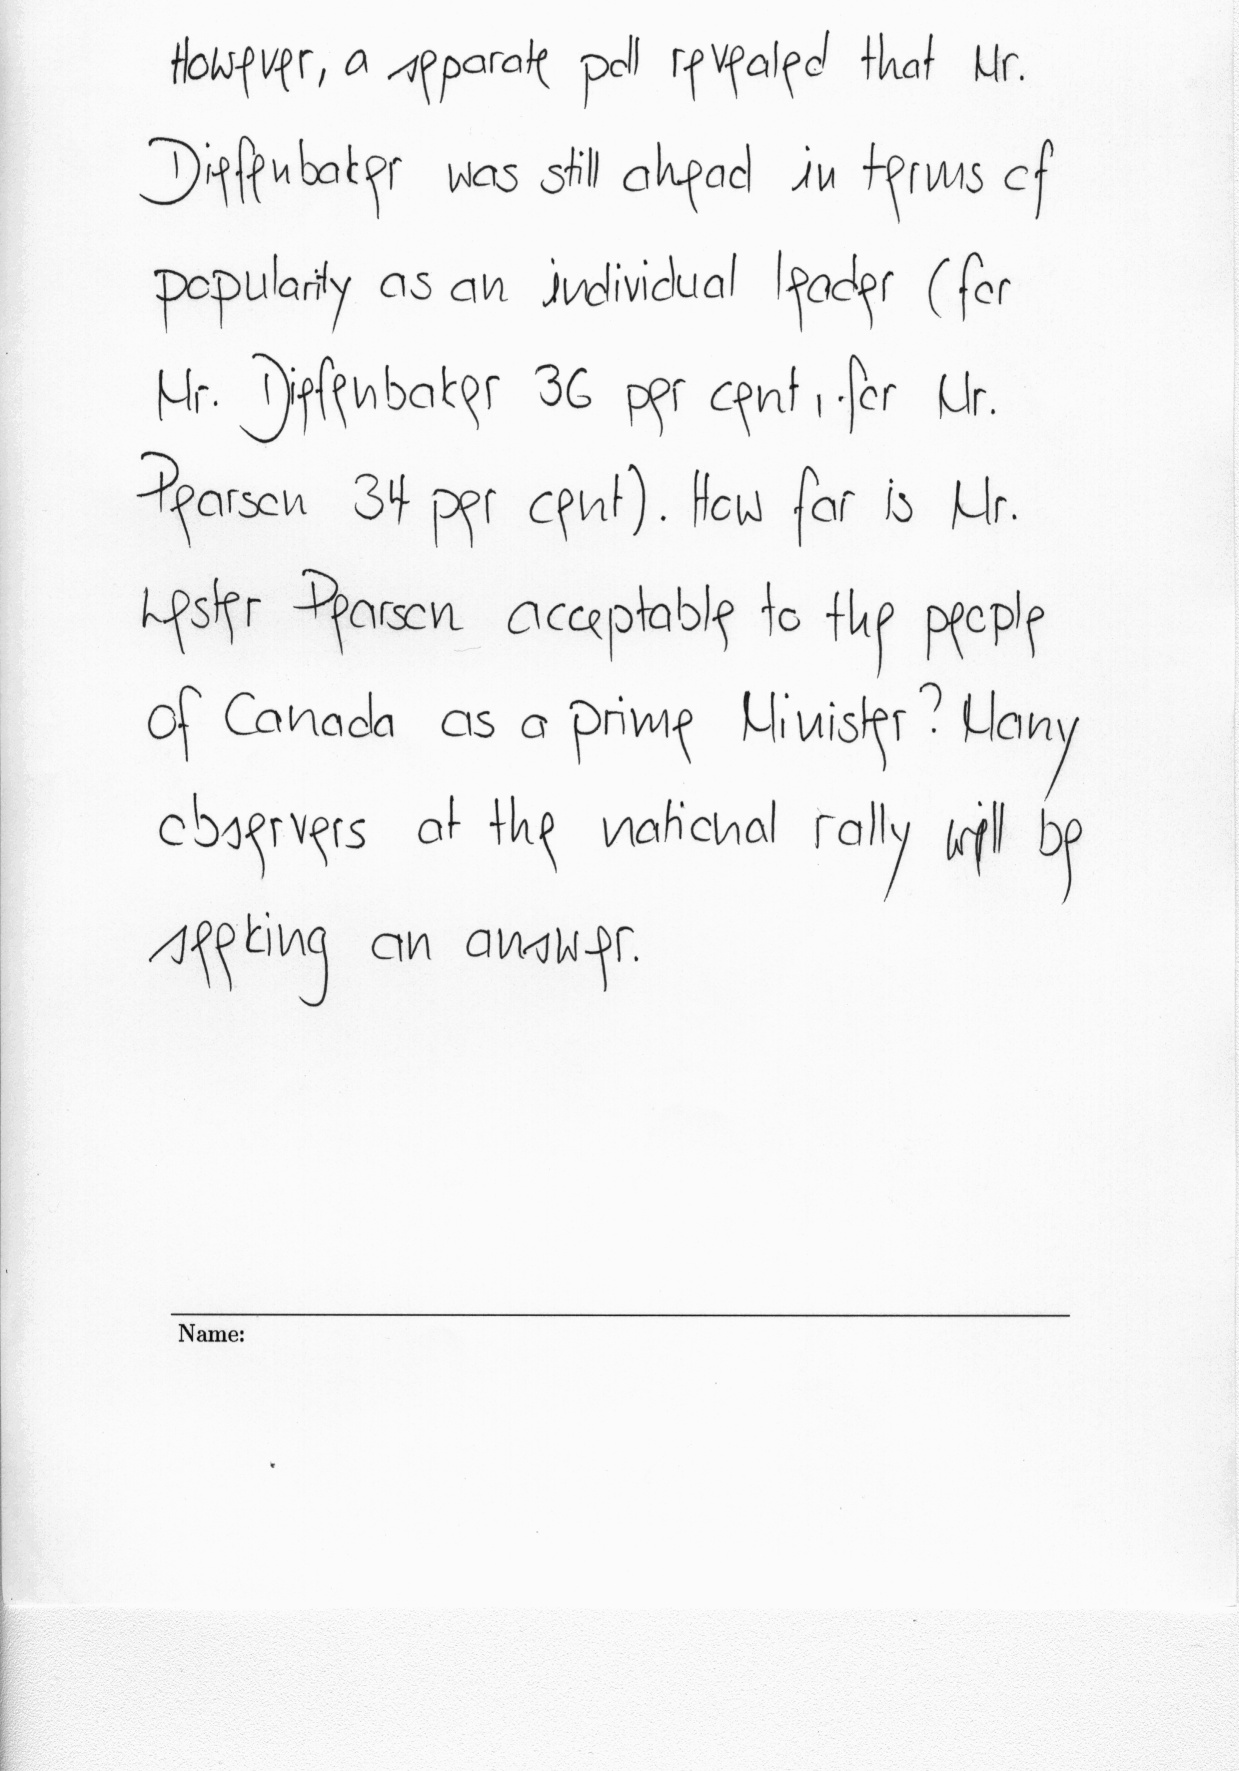 However, a separate poll revealed that Mr.
Diefenbaker was still ahead in terms of
popularity as an individual leader (for
Mr. Diefenbaker 36 per cent, for Mr.
Pearson 34 per cent). How far is Mr.
Lester Pearson acceptable to the people
of Canada as a prime Minister? Many
observers at the national rally will be
seeking an answer.
Name: